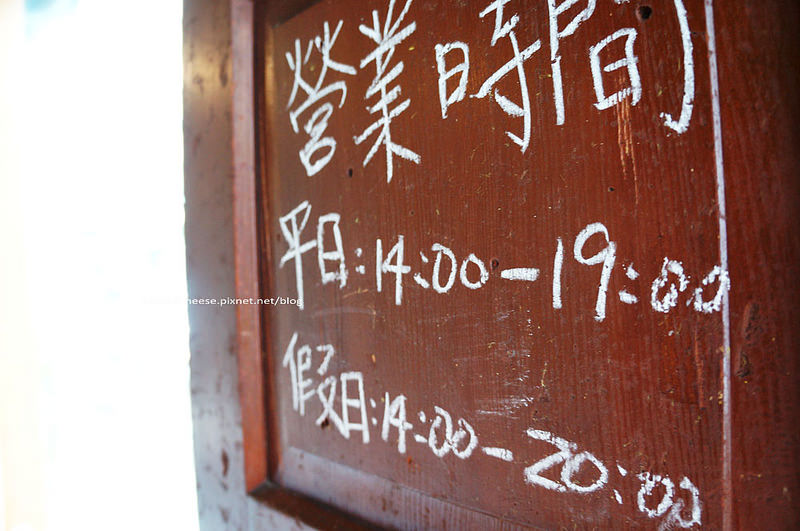 營業時間
平日:14:00-19:00
heese.pixnet.net/blog
假日:14:00-20:00